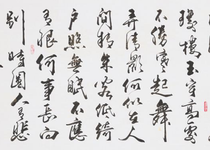 瓊樓玉宇高處
不勝寒起舞
弄清影何似在人
間轉朱閣低綺
戶照無眠不應
有恨何事長向
別時圓人有悲